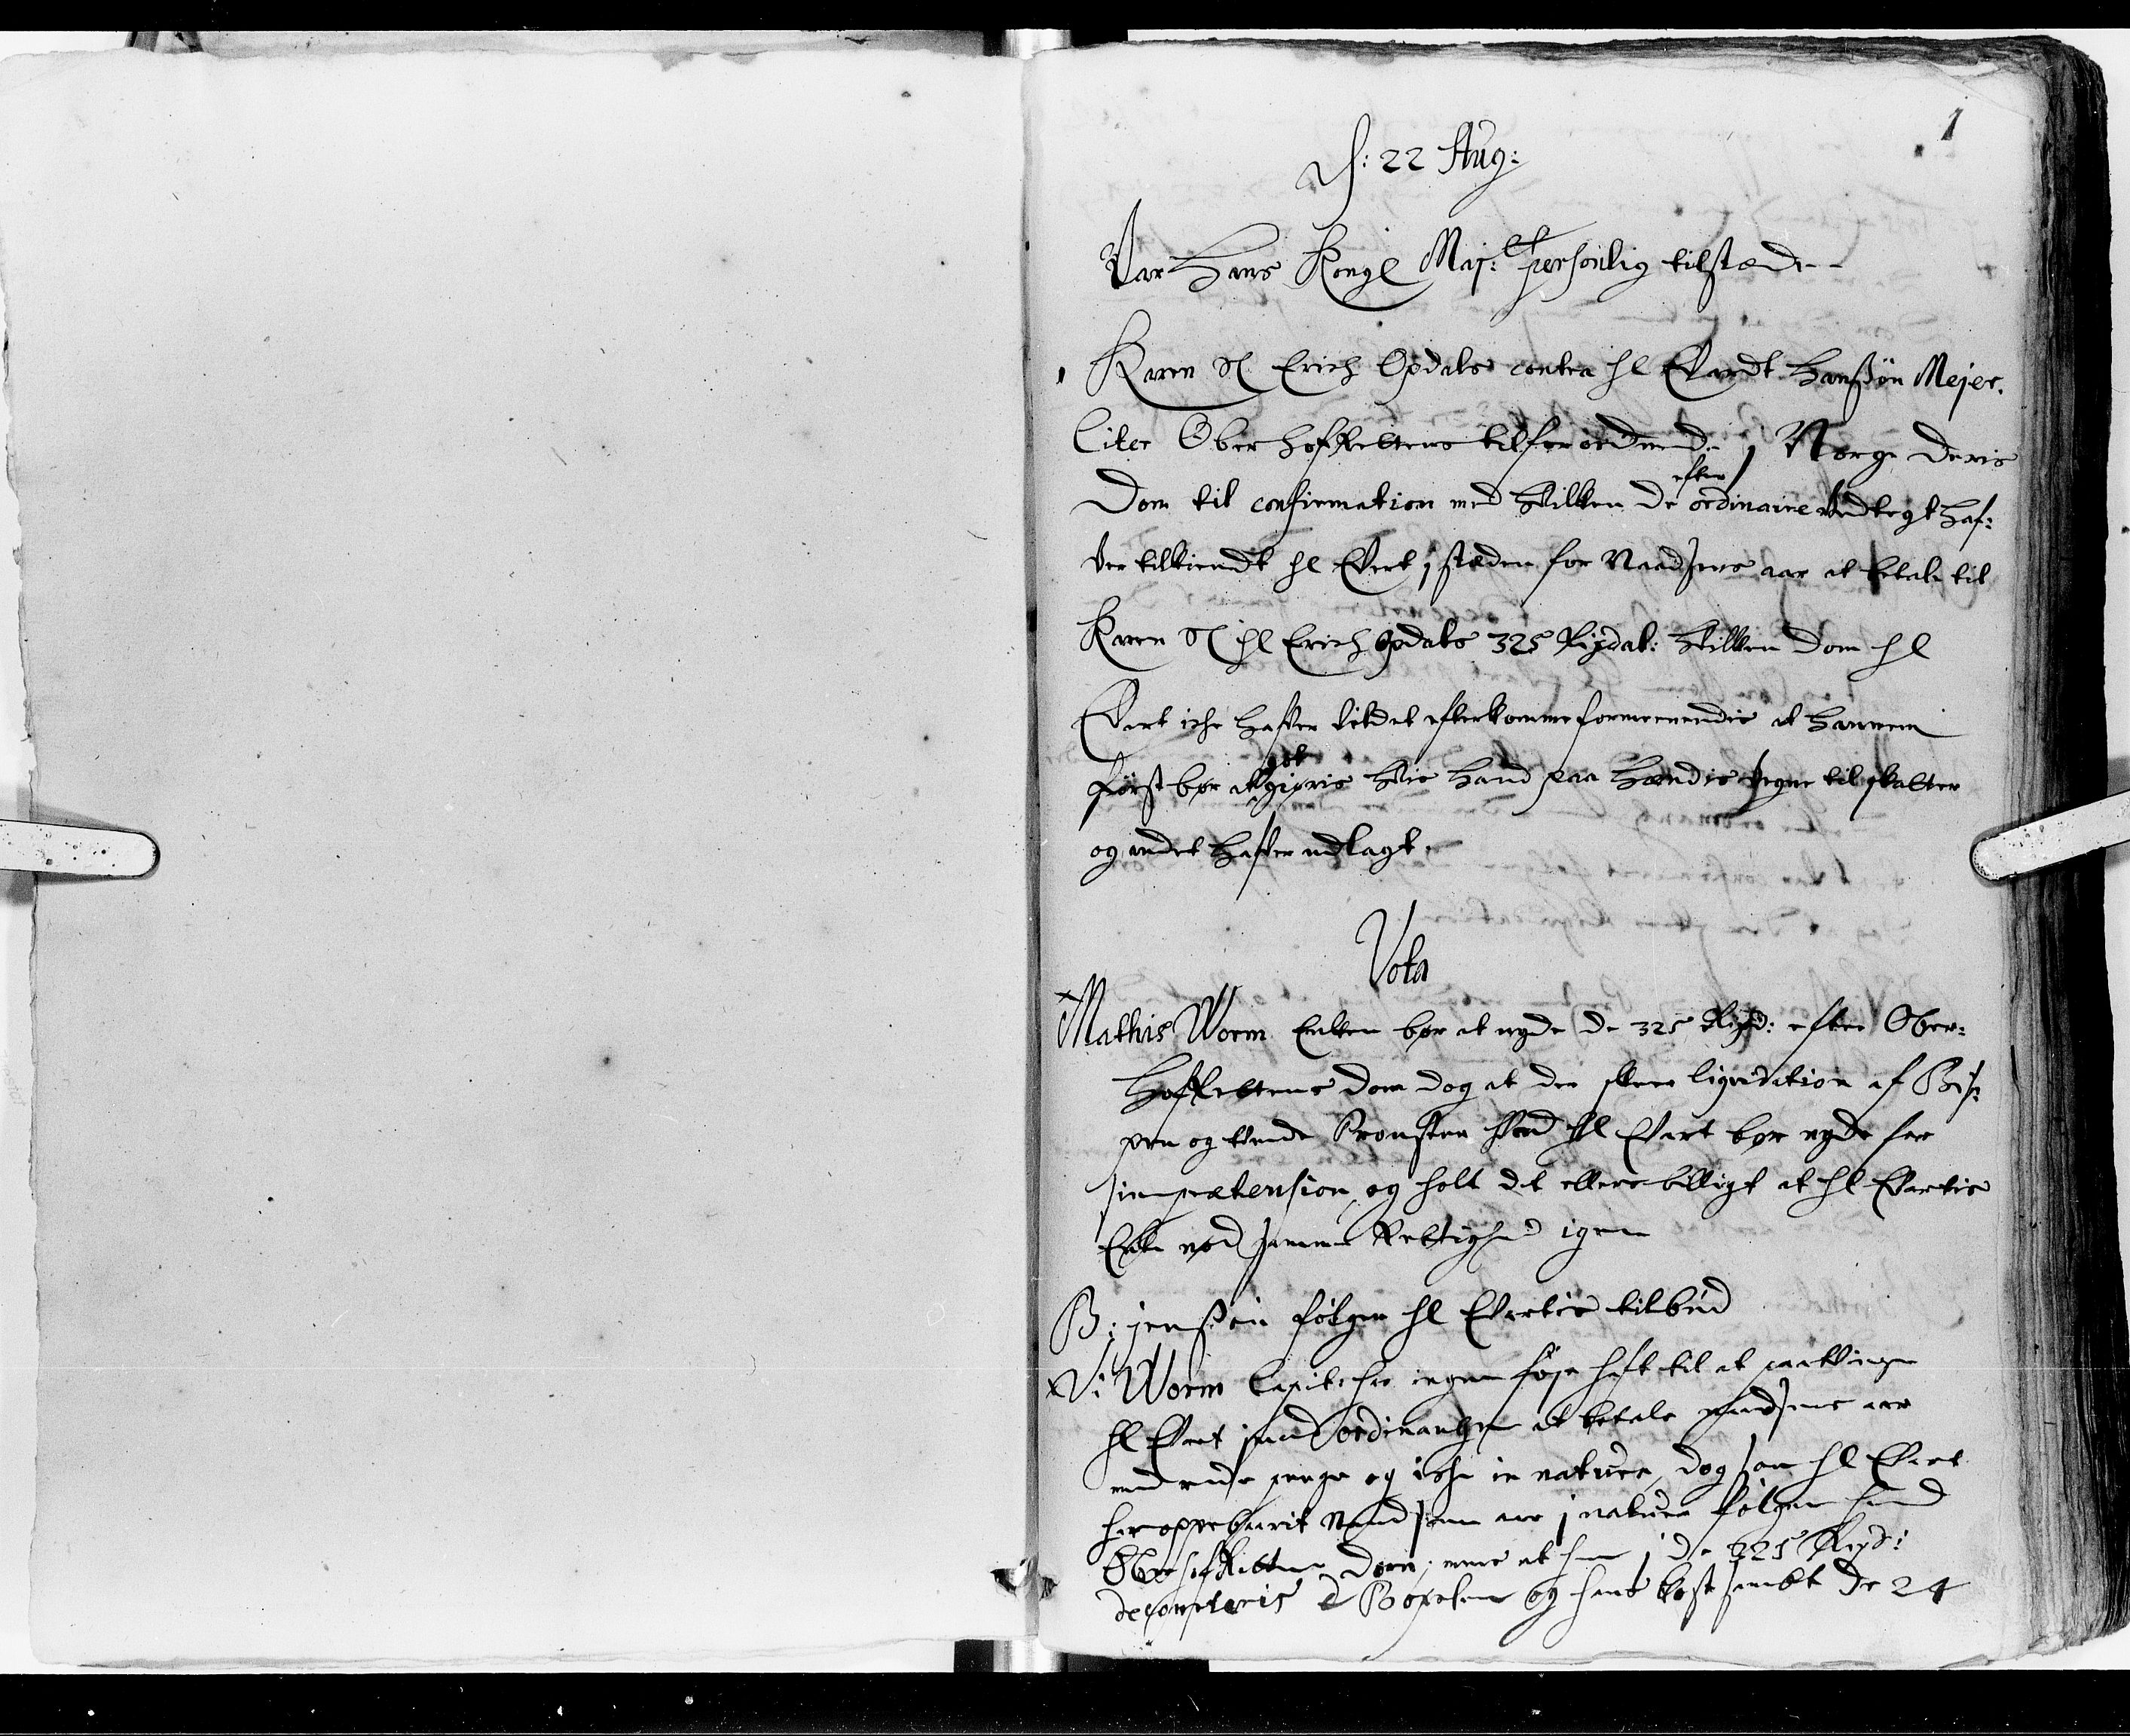 1
D: 22 Aug:
Var Hans Kongl Maj:ᵗ persönlig tilstæde
Karen Sl Erich Opdals contra hl Evardt Hanßön Mejer.
Citer Ober hofRettens tilforordnende j Norge deris
Dom til confirmation med hvilken de efter ordinaire vedtegt haf:
ver tilkiendt hl Evert j stæden for Naadsens aar at betale til
Karen Sl hl Erich Opdals 325 Rixdal: hvilken dom hl
Evert iche hafver vildet efterkomme formeenendis at hannem
först bør at godtgiøris hvis hand paa hendis vegne til skatter
og andet hafver udlagt.
Vota
Mathis Worm Encken bør at nyde de 325 Rixd: efter Ober:
HofRettens dom dog at der skeer liqvidation af Bis:
pen og Provsten hvad hl Evert bør nyde for
sin prætension, og holt det ellers billigt at hl Evertis
Encke nød samme Rettighed igen
B: jenßön følger hl Evertis tilbud
V: Worm Capitlet har ingen föje haft til at paatvinge
hl Evert imod ordinantzen at betale naadsens aar
med rede penge og iche in natura, dog som hl Evert
har oppebaarit Naadsens aar j natura følger hand
OberhofRettens Dom, mens at ham j de 325 Rixd:
decorteris Bispelsen og hans kost sambt de 24